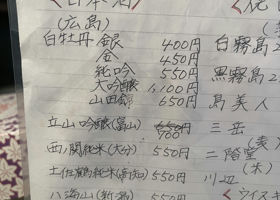 <日本酒>
(広島)
白牡丹 銀 400円
金 450円
純吟 550円
大吟醸 1,100円
山田錦 650円
立山 吟醸(富山) 700円
西ノ関 純米(大分) 550円
土佐鶴 純米(高知) 550円
八海山(新潟)
白霧島
黒霧島
島美人
三岳
(麦)
二階堂
(米)
川辺
<ウイスキ